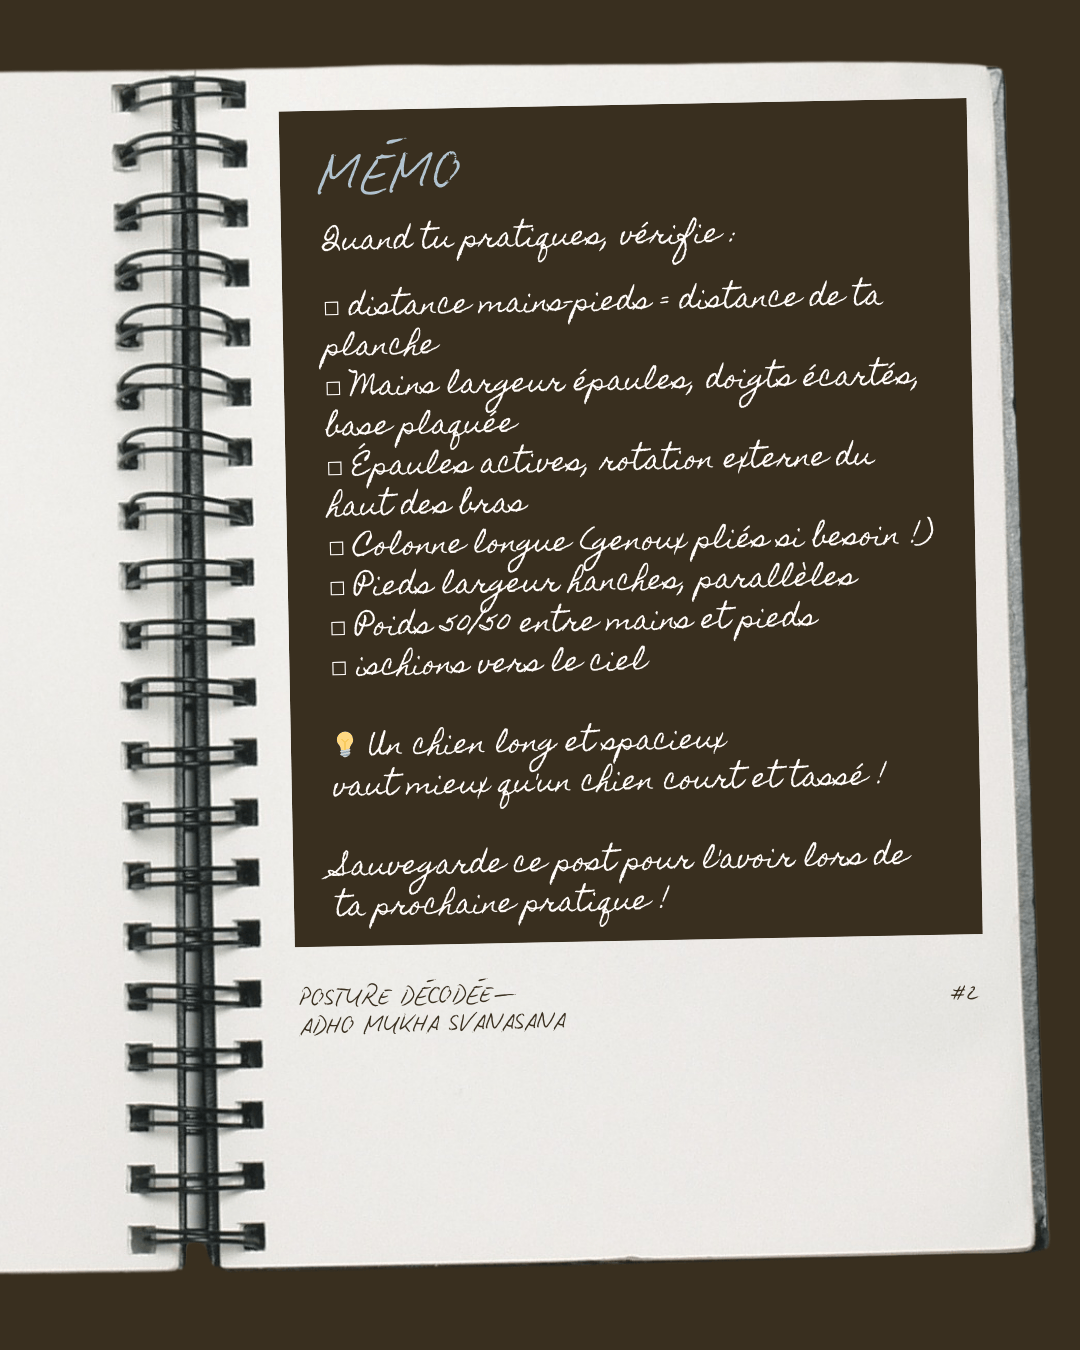 MÉMO
Quand tu pratiques, vérifie :
□ distance mains-pieds = distance de ta
planche
□ Mains largeur épaules, doigts écartés,
base plaquée
□ Épaules actives, rotation externe du
haut des bras
□ Colonne longue (genoux pliés si besoin !)
□ Pieds largeur hanches, parallèles
□ Poids 50/50 entre mains et pieds
□ ischions vers le ciel
💡 Un chien long et spacieux
vaut mieux qu'un chien court et tassé !
Sauvegarde ce post pour l'avoir lors de
ta prochaine pratique !
POSTURE DÉCODÉE—
ADHO MUKHA SVANASANA
#2